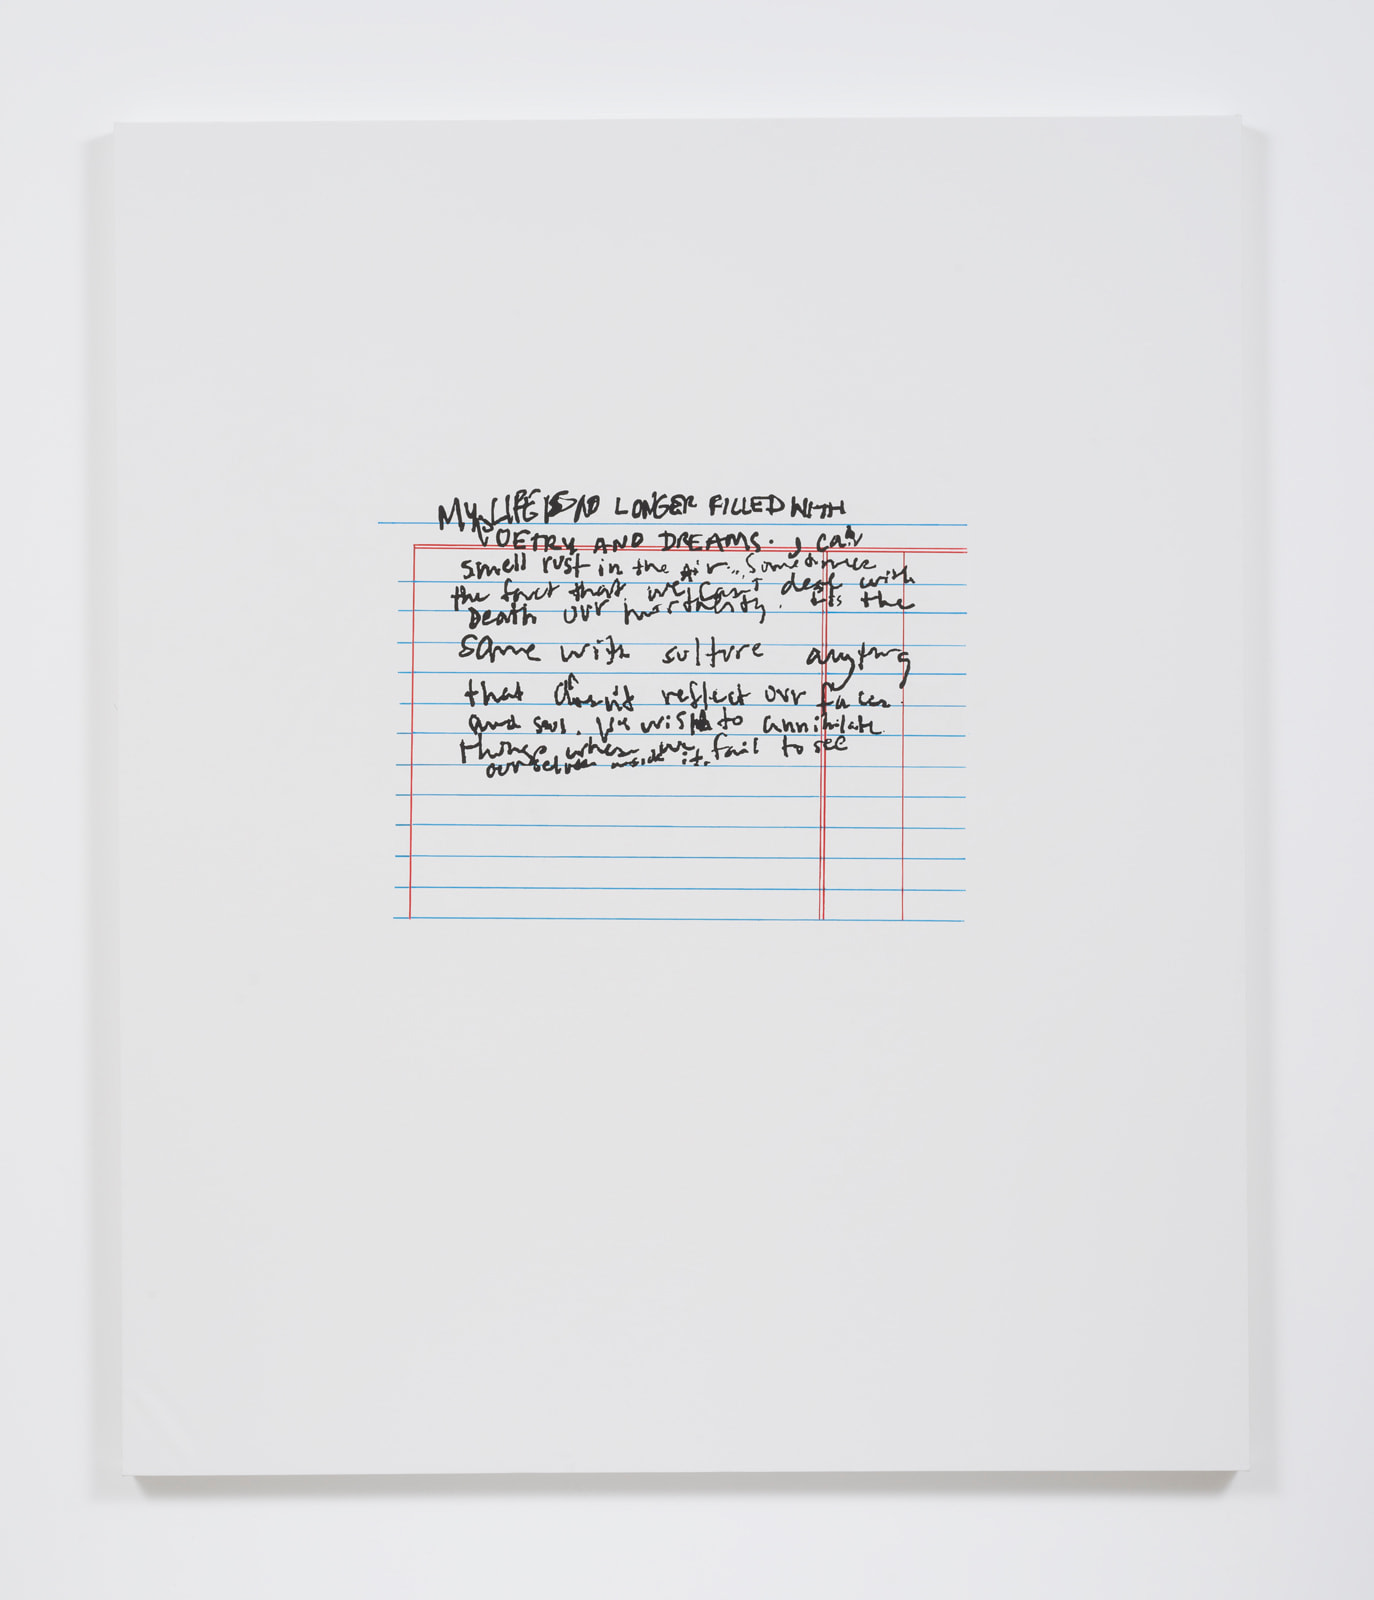 MY LIFE IS NO LONGER FILLED WITH
POETRY AND DREAMS. I can
smell rust in the Air... Sometimes
the fact that we can't deal with
Death our mortality. it's the
same with culture anything
that doesn't reflect our faces
and We wish to annihilate
things when we fail to see
ourselves inside it.